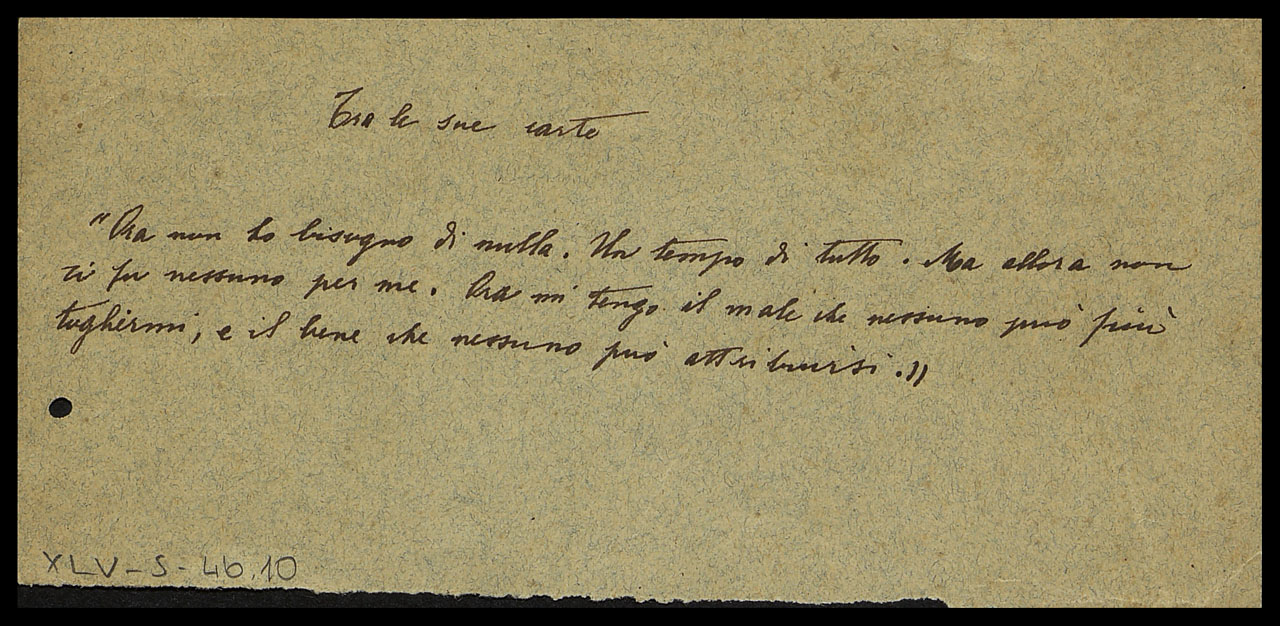 Tra le sue carte
"Ora non ho bisogno di nulla. Un tempo di tutto. Ma allora non
ci fu nessuno per me. Ora mi tengo il male che nessuno può più
togliermi, e il bene che nessuno può attribuirsi."
XLV-S-46.10